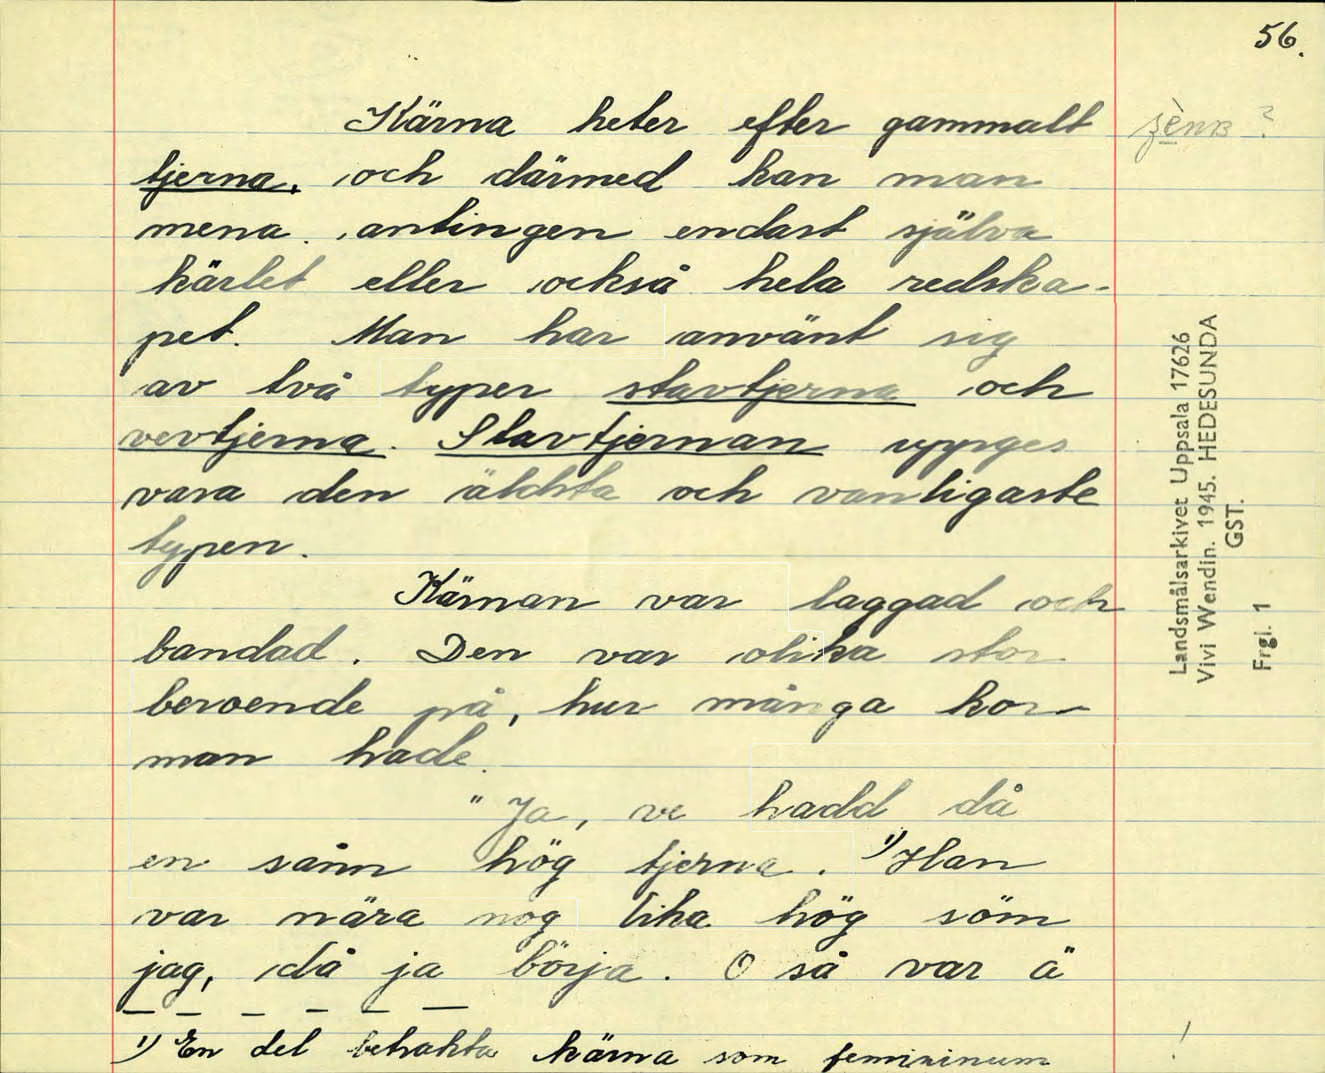 56.
Kärna heter efter gammalt
tjerna, och därmed kan man
mena antingen endast själva
kärlet eller också hela redska-
pet. Man har använt sig
av två typer stavtjerna och
vevtjerna. Stavtjernan uppges
vara den äldsta och vanligaste
typen.
Kärnan var laggad och
bandad. Den var olika stor
beroende på, hur många kor
man hade.
"Ja, ve hadd då
en sånn hög tjerna. 1) Han
var nära nog lika hög söm
jag, då ja börja. O så var ä
1) En del betrakta kärna som femininum
!
Landsmålsarkivet Uppsala 17626
Vivi Wendin. 1945. HEDESUNDA
GST.
Frgl. 1